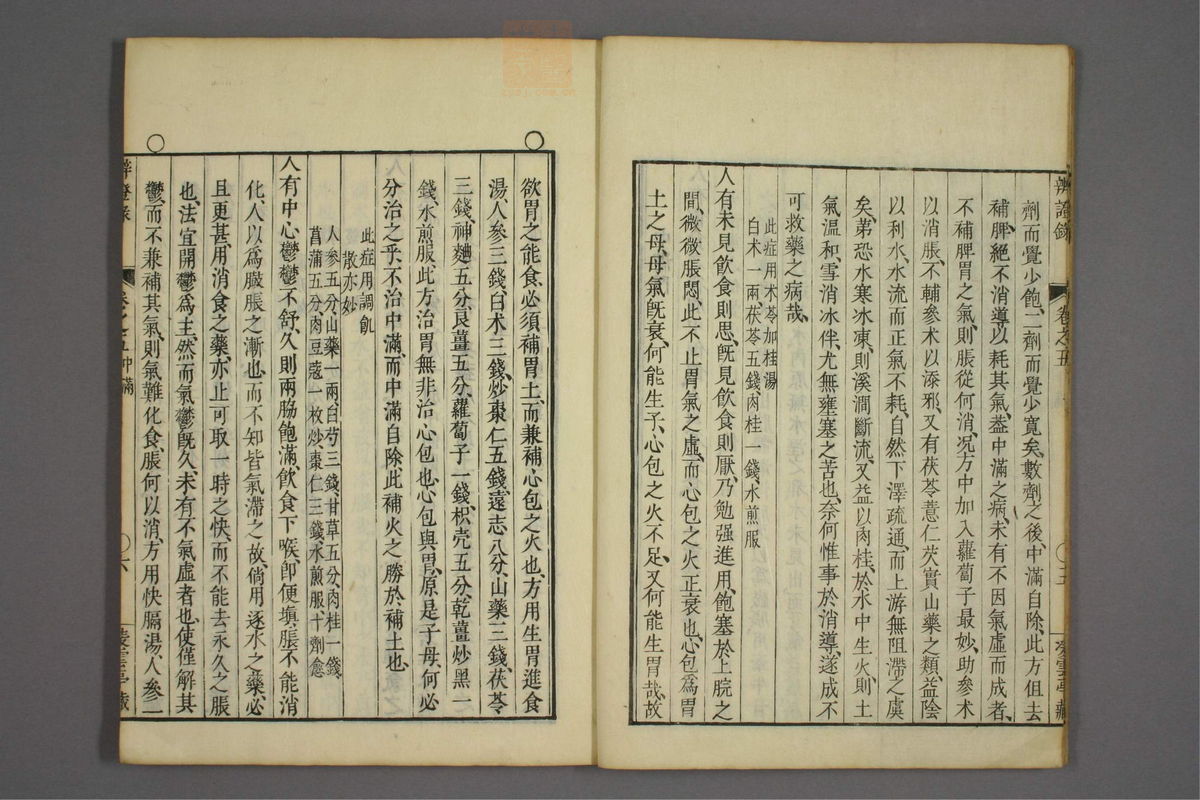 辨證錄
卷之五
劑而覺少飽、二劑而覺少寬矣、數劑之後、中滿自除、此方但去
補脾、絕不消導以耗其氣、蓋中滿之病、未有不因氣虛而成者、
不補脾胃之氣、則脹從何消、况方中加入蘿蔔子最妙、助參术
以消脹、不輔參术以添邪、又有茯苓薏仁芡實山藥之類、益陰
以利水、水流而正氣不耗、自然下澤疏通、而上游無阻滯之虞
矣、第恐水寒冰凍、則溪澗斷流、又益以肉桂、於水中生火、則土
氣溫和、雪消冰伴、尤無壅塞之苦也、奈何惟事於消導、遂成不
可救藥之病哉、
此症用术苓加桂湯
白术一兩、茯苓五錢、肉桂一錢、水煎服
人有未見飲食則思、旣見飲食則厭、乃勉强進用、飽塞於上脘之
間、微微脹悶、此不止胃氣之虛、而心包之火正衰也、心包為胃
土之母、母氣旣衰、何能生子、心包之火不足、又何能生胃哉、故
欲胃之能食、必須補胃土、而兼補心包之火也、方用生胃進食
湯、人參三錢、白术三錢、炒棗仁五錢、遠志八分、山藥三錢、茯苓
三錢、神麯五分、良薑五分、蘿蔔子一錢、枳壳五分、乾薑炒黑一
錢、水煎服、此方治胃無非治心包也、心包與胃、原是子母、何必
分治之乎、不治中滿、而中滿自除、此補火之勝於補土也、
此症用調飢
散亦妙
人參五分、山藥一兩、白芍三錢、甘草五分、肉桂一錢、
菖蒲五分、肉豆蔻一枚、炒棗仁三錢、水煎服十劑愈
人有中心鬱鬱不舒、久則兩脇飽滿、飲食下喉、卽便塡脹、不能消
化、人以為臌脹之漸也、而不知皆氣滯之故、倘用逐水之藥、必
且更甚、用消食之藥、亦止可取一時之快、而不能去永久之脹
也、法宜開鬱為主、然而氣鬱旣久、未有不氣虛者也、使僅解其
鬱、而不兼補其氣、則氣難化食、脹何以消、方用快膈湯、人參一